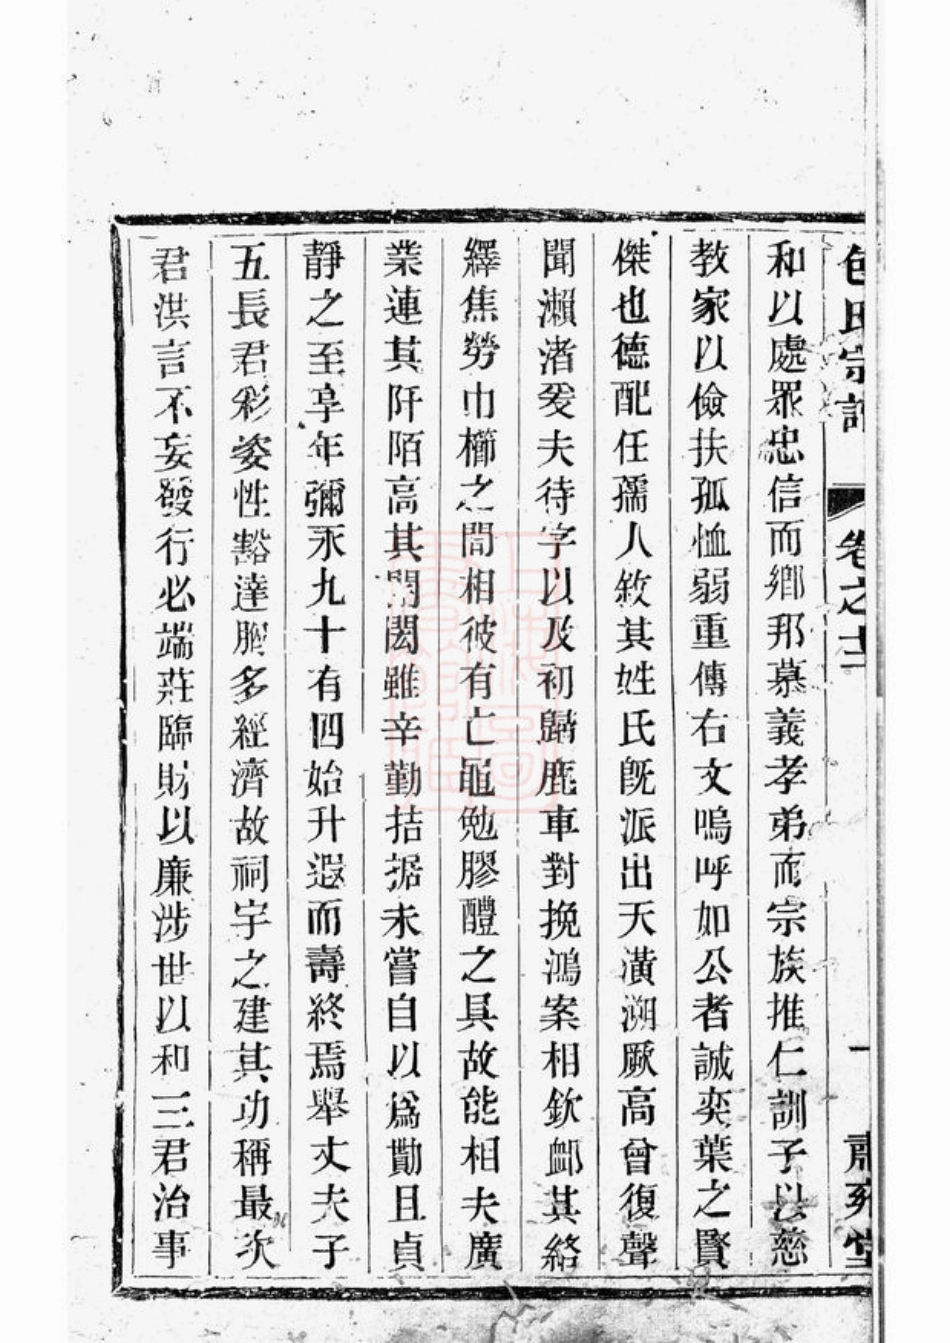 包氏宗譜 卷之十二 一 肅雍堂
和以處眾忠信而鄉邦慕義孝弟而宗族推仁訓子以慈
教家以儉扶孤恤弱重傳右文嗚呼如公者誠奕葉之賢
傑也德配任孺人敘其姓氏旣派出天潢溯厥高曾復聲
聞瀨渚爰夫待字以及初歸鹿車對挽鴻案相欽䘏其絡
繹焦勞巾櫛之間相彼有亡黽勉膠醴之具故能相夫廣
業連其阡陌高其閈閎雖辛勤拮据未嘗自以爲勩且貞
靜之至享年彌永九十有四始升遐而壽終焉舉丈夫子
五長君彩姿性豁達胸多經濟故祠宇之建其功稱最次
君洪言不妄發行必端莊臨財以廉涉世以和三君治事